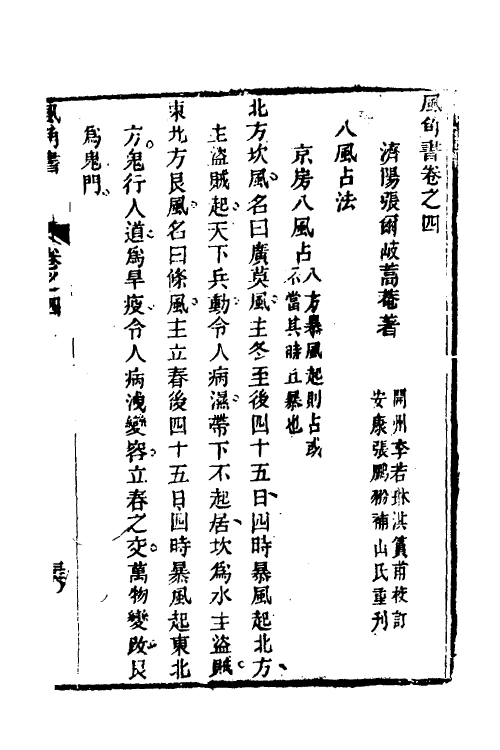 風角書卷之四
濟陽張爾岐蒿菴著
開州李若琳淇篔甫校訂
安康張鵬翂補山氏重刋
八風占法
京房八風占八方暴風起則占或
不當其時丘暴也
北方坎風名曰廣莫風主冬至後四十五日四時暴風起北方
主盜賊起天下兵動令人病濕帶下不起居坎爲水主盜賊
東北方艮風名曰條風主立春後四十五日四時暴風起東北
方鬼行人道爲旱疫令人病洩變容立春之交萬物變改艮
爲鬼門
風角書
卷之四